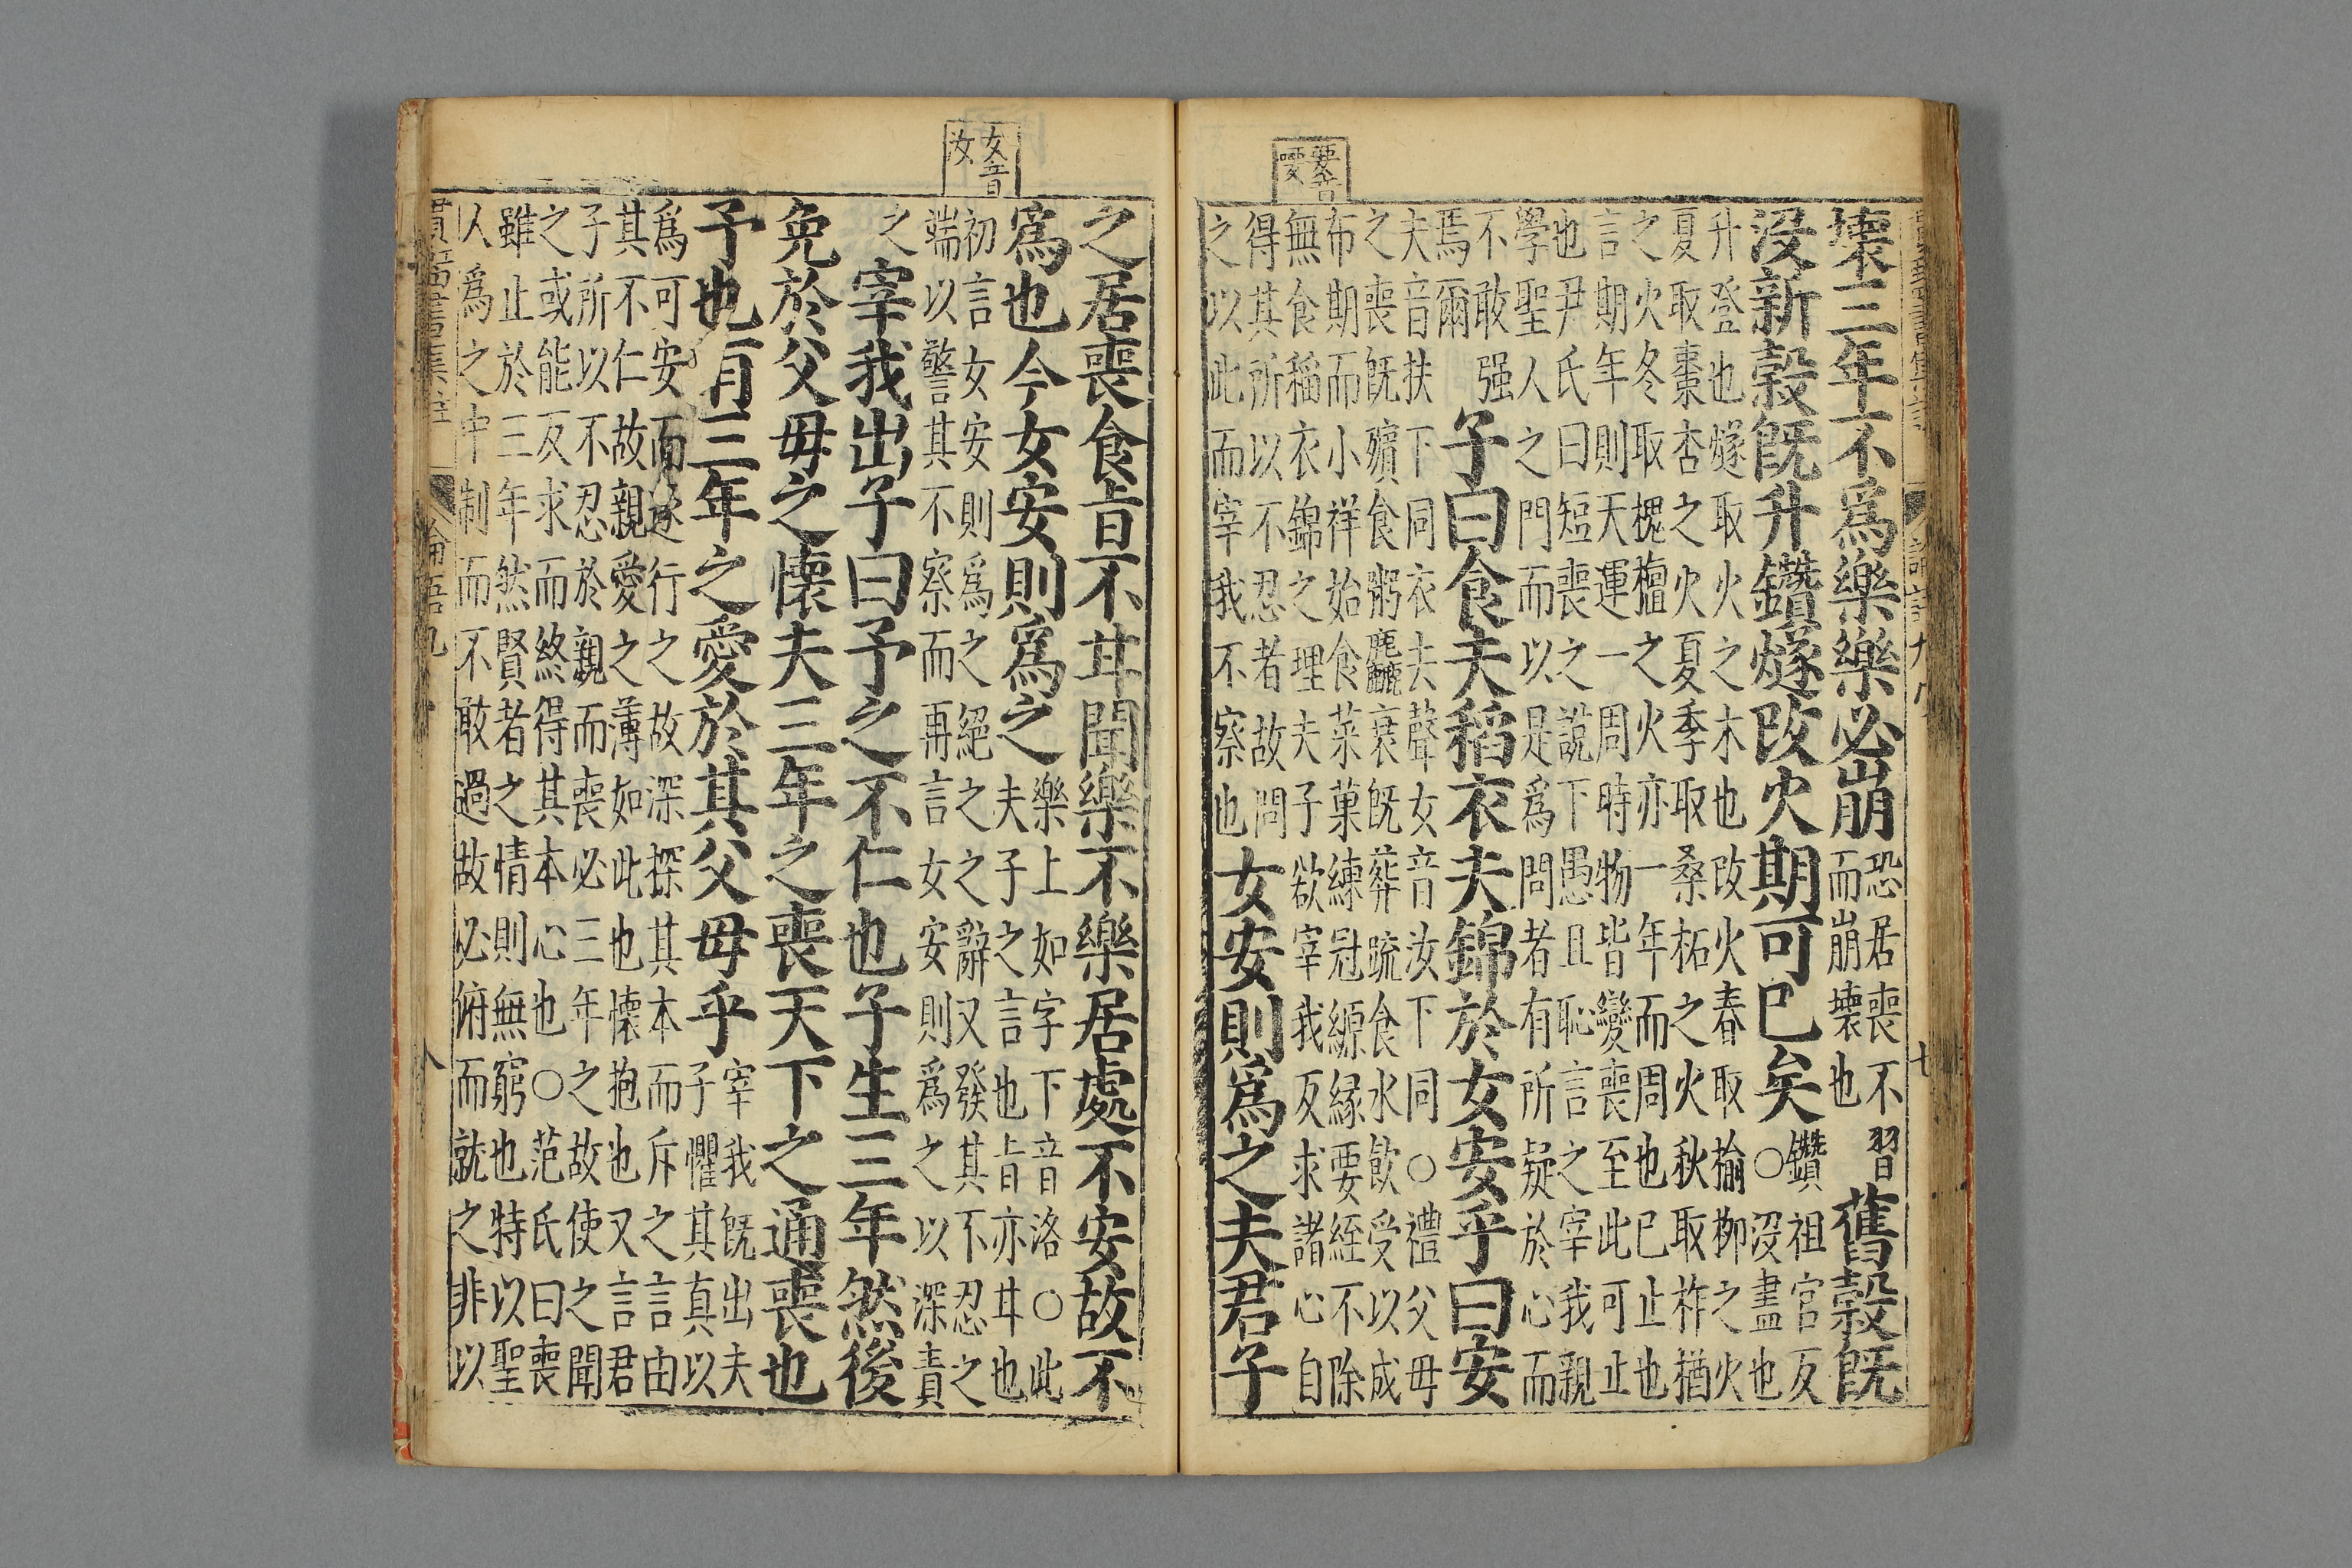 要音
壞三年不爲樂樂必崩
恐居喪不習
而崩壞也
舊穀既
没新穀既升鑽燧改火期可已矣
鑽祖官反
○没盡也
升登也燧取火之木也改火春取榆柳之火
夏取棗杏之火夏季取桑柘之火秋取柞楢
之火冬取槐檀之火亦一年而周也已止也
言期年則天運一周時物皆變喪至此可止
也尹氏曰短喪之說下愚且恥言之宰我親
學聖人之門而以是爲問者有所疑於心而
不敢强
焉爾
子曰食夫稻衣夫錦於女安乎曰安
夫音扶下同衣去聲女音汝下同○禮父母
之喪既殯食粥麤衰既葬疏食水飲受以成
布期而小祥始食菜菓練冠縓緣要絰不除
無食稻衣錦之理夫子欲宰我反求諸心自
得其所以不忍者故問
之以此而宰我不察也
女安則爲之夫君子
女音
汝
之居喪食旨不甘聞樂不樂居處不安故不
爲也今女安則爲之
樂上如字下音洛○此
夫子之言也旨亦甘也
初言女安則爲之絕之之辭又發其不忍之
端以警其不察而再言女安則爲之以深責
之
宰我出子曰予之不仁也子生三年然後
免於父母之懷夫三年之喪天下之通喪也
予也有三年之愛於其父母乎
宰我既出夫
子懼其真以
爲可安而遂行之故深探其本而斥之言由
其不仁故親愛之薄如此也懷抱也又言君
子所以不忍於親而喪必三年之故使之聞
之或能反求而終得其本心也○范氏曰喪
雖止於三年然賢者之情則無窮也特以聖
人爲之中制而不敢過故必俯而就之非以
論語九
八